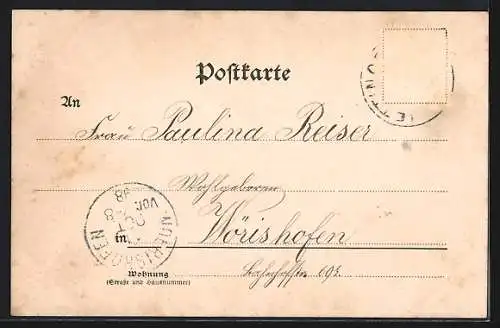 Postkarte
An
Frau Paulina Reiser
Wohlgeboren
in Wörishofen
Wohnung
(Straße und Hausnummer)
WOERISHOFEN
OCT
98
VOR.
8